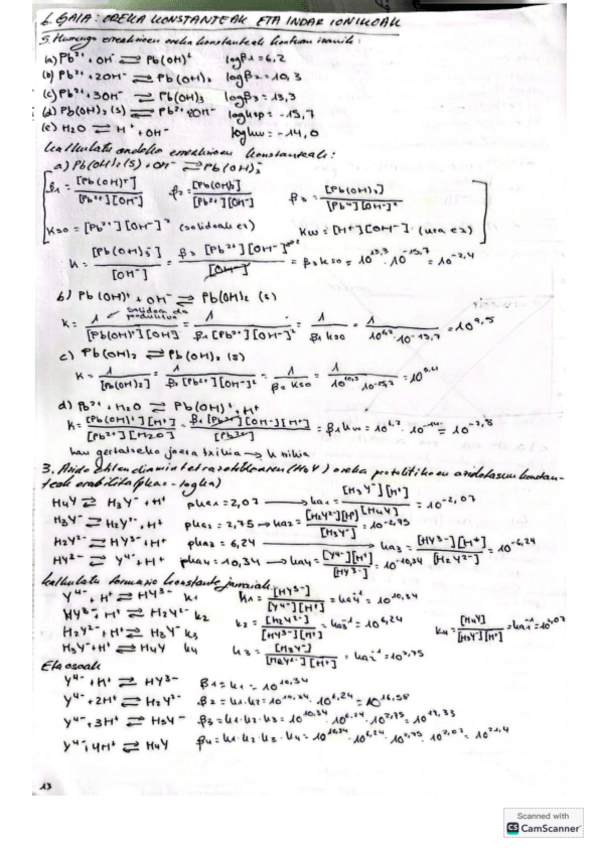 6. GAIA: OREKA KONSTANTEAK ETA INDAR IONIKOAK
5. Hurrengo erreakzioen oreka konstanteak kontuan izanik:
(a) Pb²⁺ + OH⁻ ⇌ Pb(OH)⁺ logβ1 = 6,2
(b) Pb²⁺ + 2OH⁻ ⇌ Pb(OH)₂ logβ2 = 10,3
(c) Pb²⁺ + 3OH⁻ ⇌ Pb(OH)₃ logβ3 = 13,3
(d) Pb(OH)₂(s) ⇌ Pb²⁺ + 2OH⁻ logksp = -15,7
(e) H2O ⇌ H⁺ + OH⁻ logkw = -14,0
kalkulatu ondoko erreakzioen konstanteak:
a) Pb(OH)₂(s) + OH⁻ ⇌ Pb(OH)₃⁻
β1 = [Pb(OH)⁺] / [Pb²⁺][OH⁻] β2 = [Pb(OH)₂] / [Pb²⁺][OH⁻] β3 = [Pb(OH)₃] / [Pb²⁺][OH⁻]³
Kso = [Pb²⁺][OH⁻]² (solidoak ez) Kw = [H⁺][OH⁻] (ura ez)
K = [Pb(OH)₃⁻] / [OH⁻] = β3 [Pb²⁺][OH⁻]³ / [OH⁻] = β3 kso = 10^13,3 · 10^-15,7 = 10^-2,4
b) Pb(OH)⁺ + OH⁻ ⇌ Pb(OH)₂ (s)
solidoa da produktua
K = 1 / [Pb(OH)⁺][OH⁻] = 1 / β1 [Pb²⁺][OH⁻]² = 1 / β1 kso = 1 / 10^6,2 · 10^-15,7 = 10^9,5
c) Pb(OH)₂ ⇌ Pb(OH)₂ (s)
K = 1 / [Pb(OH)₂] = 1 / β2 [Pb²⁺][OH⁻]² = 1 / β2 kso = 1 / 10^10,3 · 10^-15,7 =
d) Pb²⁺ + H2O ⇌ Pb(OH)⁺ + H⁺
K = [Pb(OH)⁺][H⁺] / [Pb²⁺][H2O] = β1 [Pb²⁺][OH⁻][H⁺] / [Pb²⁺] = β1 kw = 10^6,2 · 10^-14 = 10^-7,8
hau gertatzeko joera txikia → k txikia
3. Azido etilendiamintetraazetikoaren (H4Y) oreka protolitikoen azidotasun konstan-
teak erabilita (pka = -logka)
H4Y ⇌ H3Y⁻ + H⁺ pka1 = 2,07 → ka1 = [H3Y⁻][H⁺] / [H4Y] = 10^-2,07
H3Y⁻ ⇌ H2Y²⁻ + H⁺ pka2 = 2,75 → ka2 = [H2Y²⁻][H⁺] / [H3Y⁻] = 10^-2,75
H2Y²⁻ ⇌ HY³⁻ + H⁺ pka3 = 6,24 → ka3 = [HY³⁻][H⁺] / [H2Y²⁻] = 10^-6,24
HY³⁻ ⇌ Y⁴⁻ + H⁺ pka4 = 10,34 → ka4 = [Y⁴⁻][H⁺] / [HY³⁻] = 10^-10,34
kalkulatu formazio konstante jarraiak
Y⁴⁻ + H⁺ ⇌ HY³⁻ k1 k1 = [HY³⁻] / [Y⁴⁻][H⁺] = ka4⁻¹ = 10^10,34
HY³⁻ + H⁺ ⇌ H2Y²⁻ k2 k2 = [H2Y²⁻] / [HY³⁻][H⁺] = ka3⁻¹ = 10^6,24
H2Y²⁻ + H⁺ ⇌ H3Y⁻ k3 k3 = [H3Y⁻] / [H2Y²⁻][H⁺] = ka2⁻¹ = 10^2,75
H3Y⁻ + H⁺ ⇌ H4Y k4 k4 = [H4Y] / [H3Y⁻][H⁺] = ka1⁻¹ = 10^2,07
Eta osoak
Y⁴⁻ + H⁺ ⇌ HY³⁻ β1 = k1 = 10^10,34
Y⁴⁻ + 2H⁺ ⇌ H2Y²⁻ β2 = k1·k2 = 10^10,34 · 10^6,24 = 10^16,58
Y⁴⁻ + 3H⁺ ⇌ H3Y⁻ β3 = k1·k2·k3 = 10^10,34 · 10^6,24 · 10^2,75 = 10^19,33
Y⁴⁻ + 4H⁺ ⇌ H4Y β4 = k1·k2·k3·k4 = 10^10,34 · 10^6,24 · 10^2,75 · 10^2,07 = 10^21,4
13
Scanned with
CS CamScanner